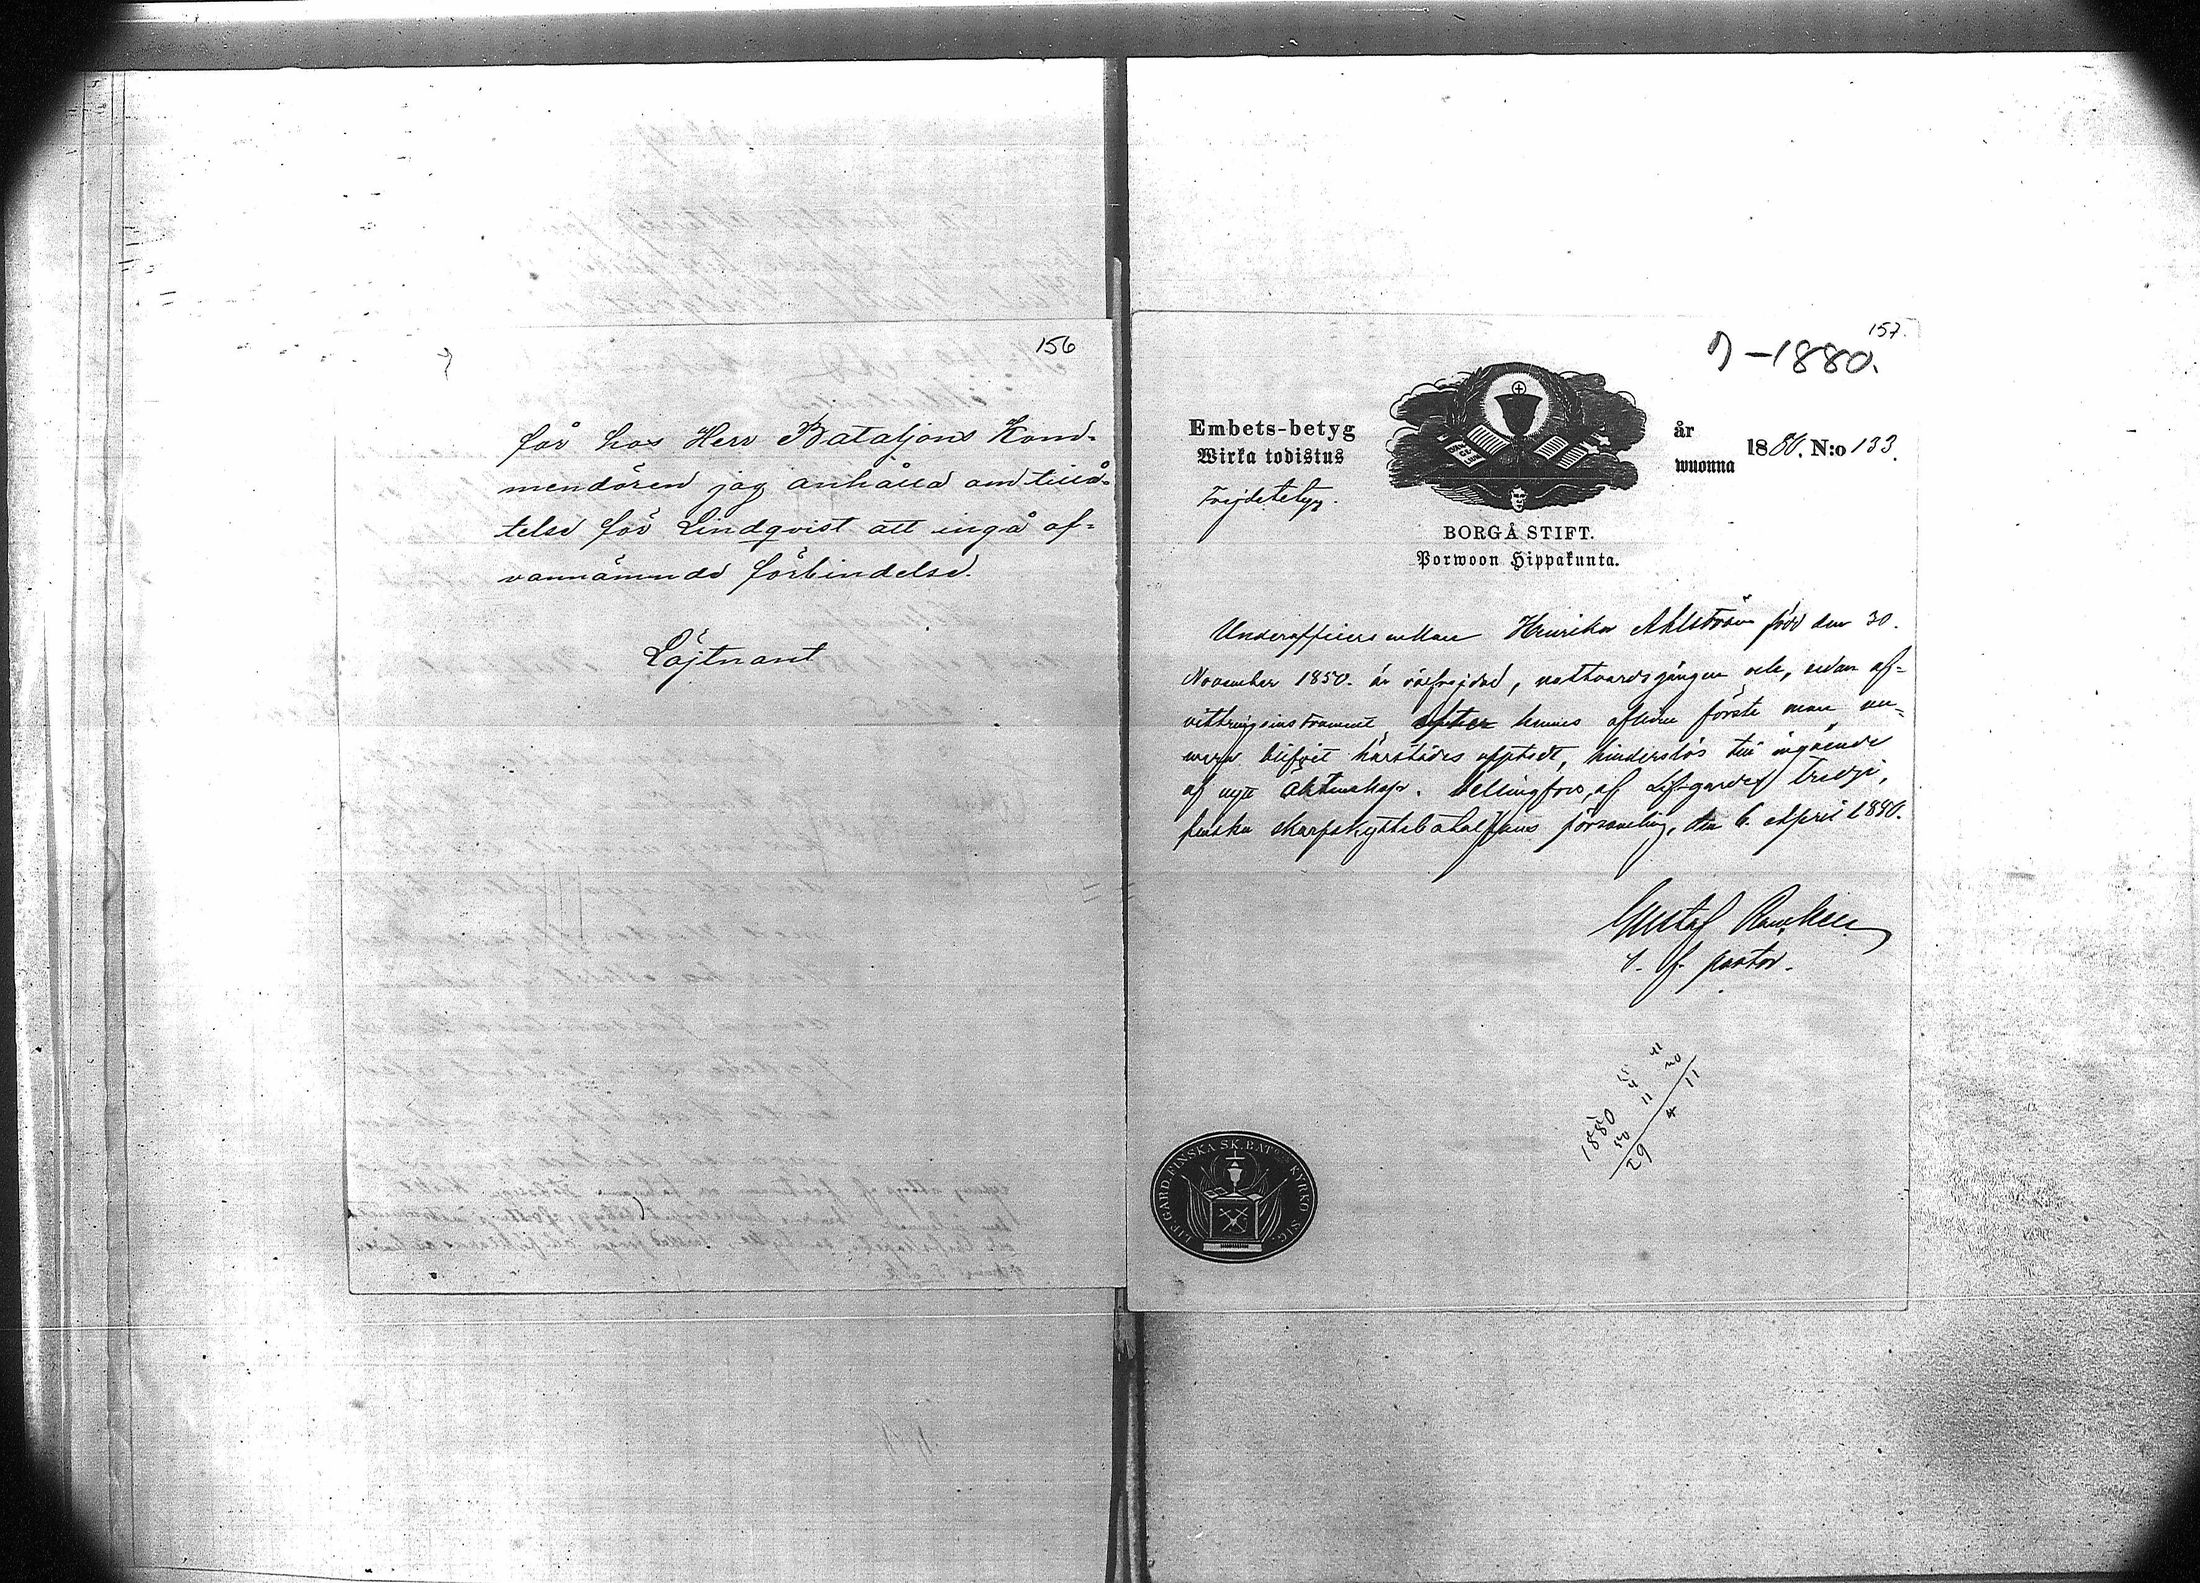 156
får hos Herr Bataljons Kom-
mendören jag anhålla om tillå-
telse för Lindqvist att ingå of-
vannämnde förbindelse.
Löjtnant
157.
J-1880.
Embets-betyg
Wirka todistus
år
wuonna
1880. N:o 133.
Frejdebetyg.
BORGÅ STIFT.
Porwoon Hippakunta.
Underofficers enkan Henrika Ahlström född den 30.
November 1850. är välfrejdad, nattvardsgången och, sedan af-
vittringsinstrument efter hennes aflidne förste man nu-
mera blifvit härstädes uppteedt, hinderslös till ingående
af nytt äktenskap. Helsingfors, af Lifgardets Tredje,
finska skarpskyttebataljons församling, den 6. April 1880.
Gustaf
v. f. pastor.
LIF. GARD. FINSKA SK. BAT:S KYRKO SIG.
1880
50
29
11
4
11